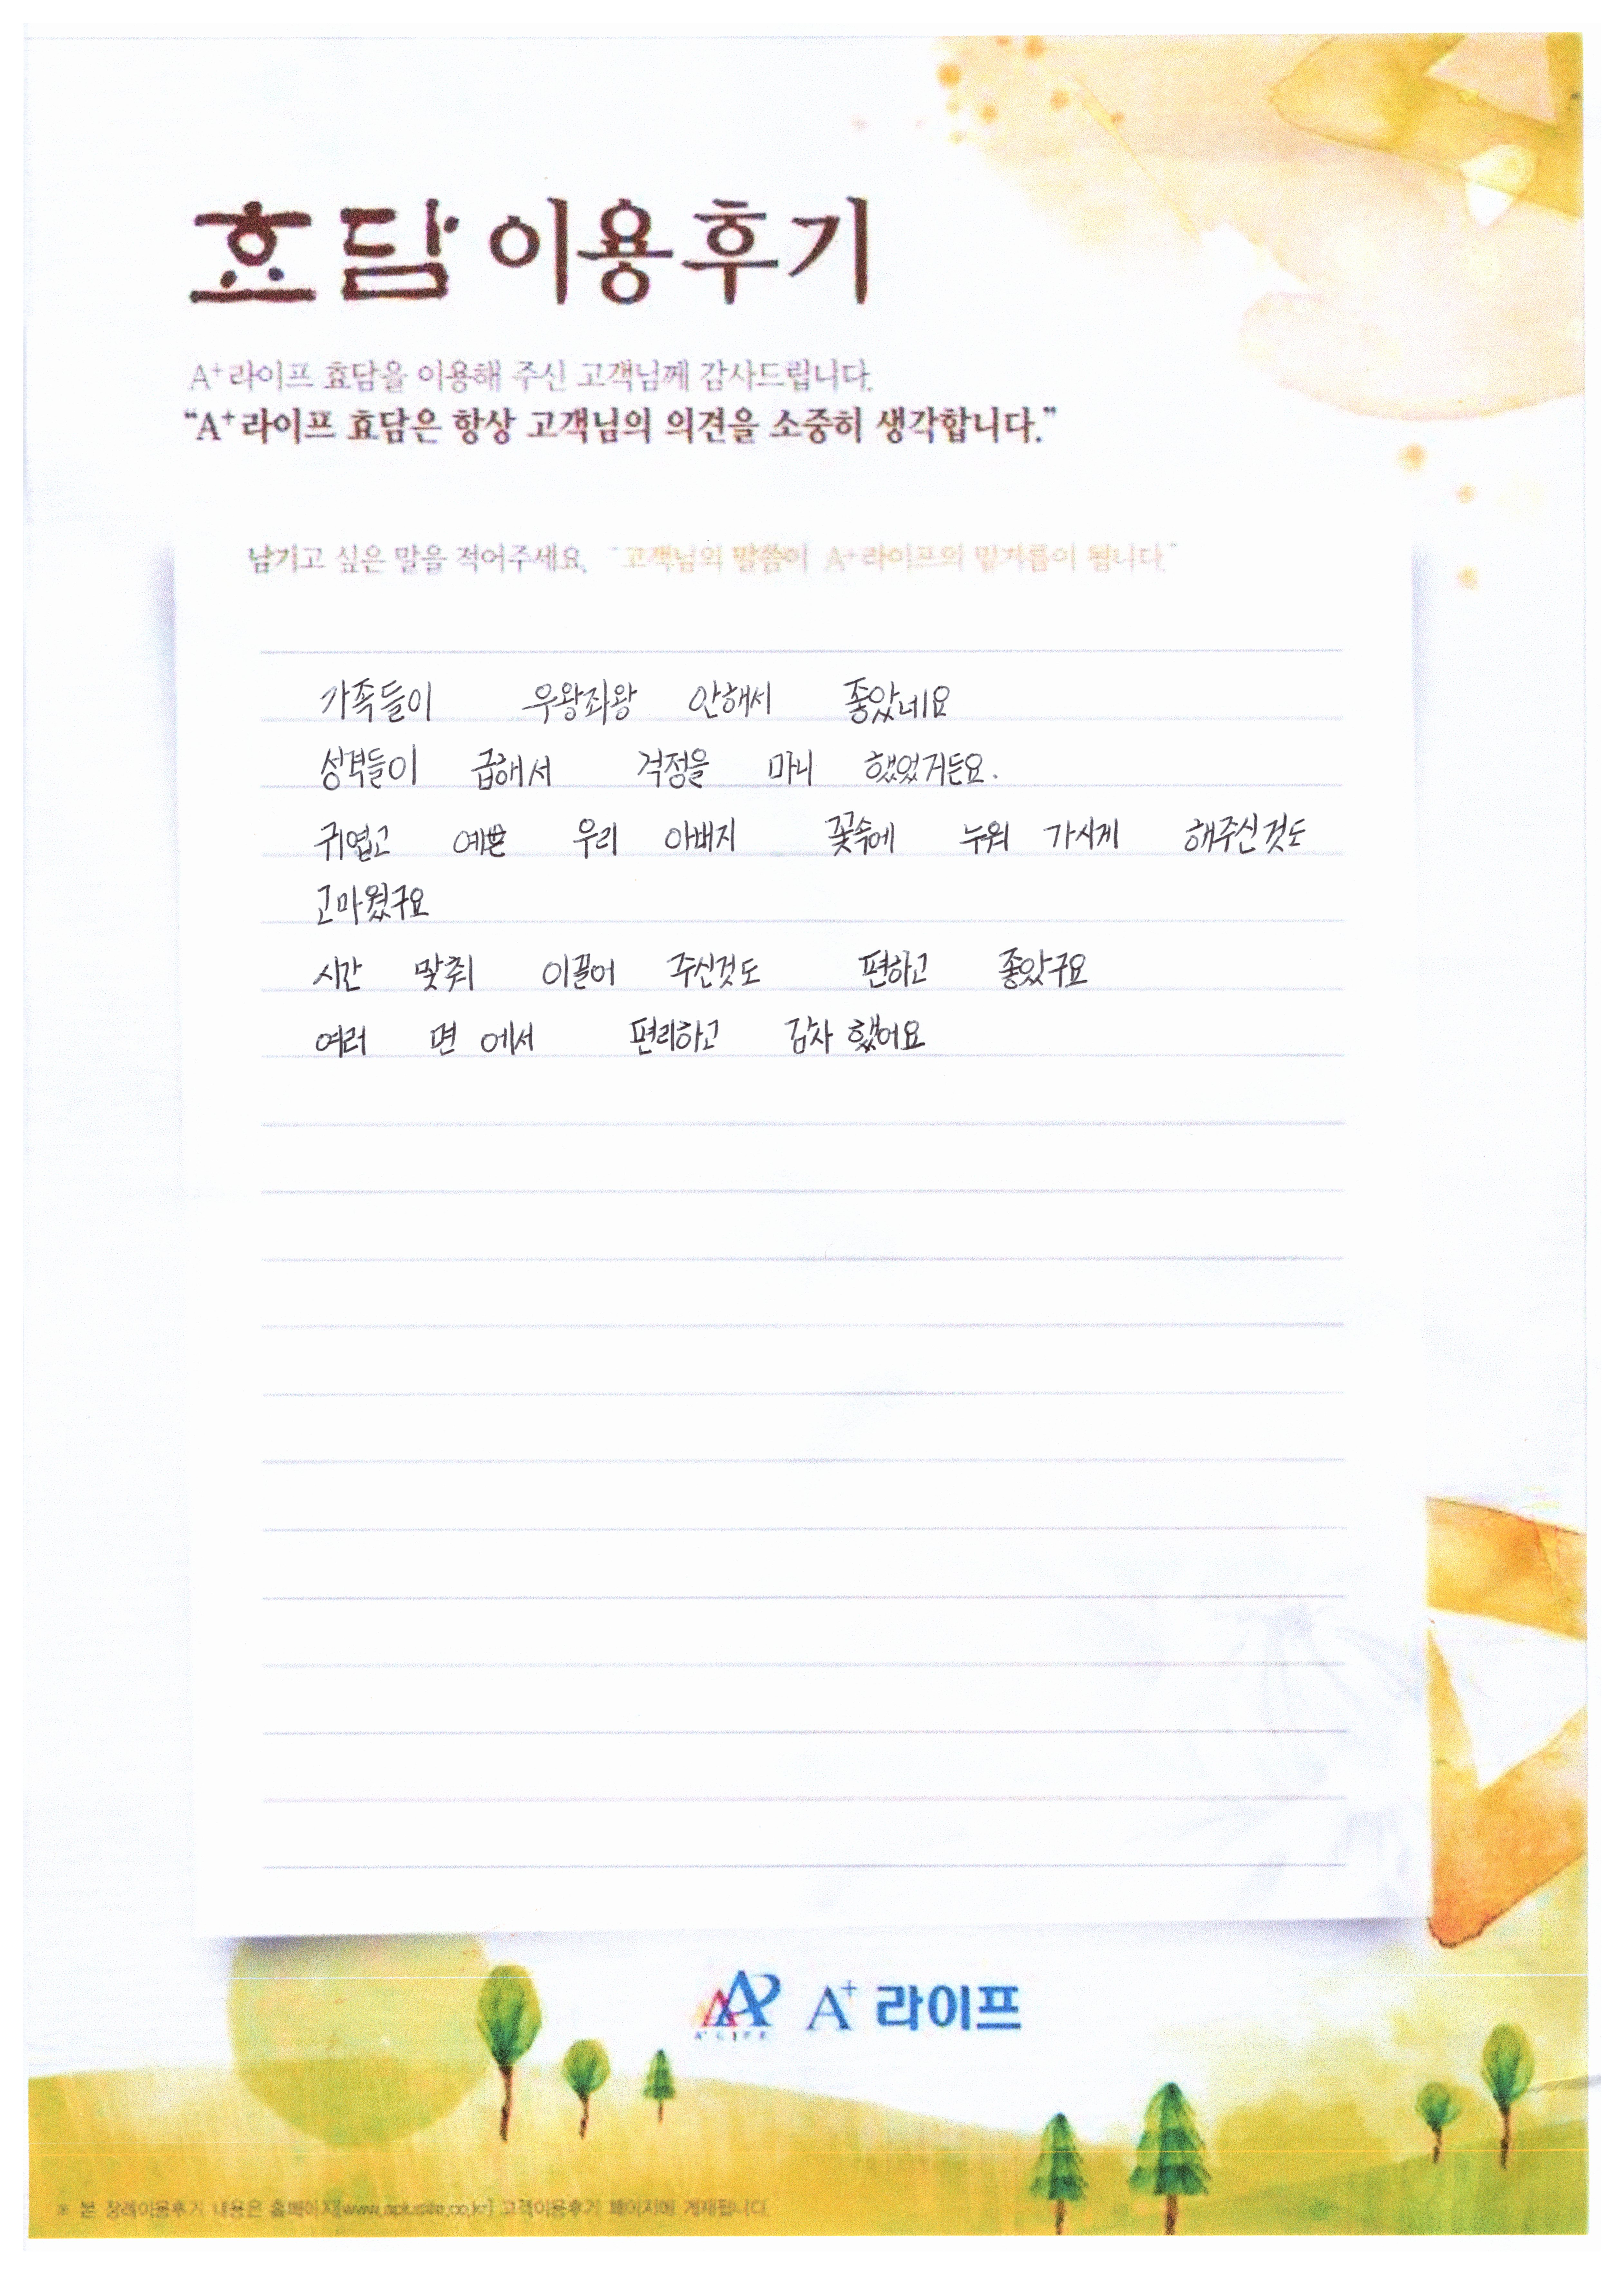 효담 이용후기
A+라이프 효담을 이용해 주신 고객님께 감사드립니다.
“A+라이프 효담은 항상 고객님의 의견을 소중히 생각합니다.”
남기고 싶은 말을 적어주세요. “고객님의 말씀이 A+라이프의 밑거름이 됩니다.”
가족들이 우왕좌왕 안해서 좋았네요
성격들이 급해서 걱정을 마니 했었거든요.
귀엽고 예쁜 우리 아버지 꽃속에 누워 가시게 해주신것도
고마웠구요
시간 맞춰 이끌어 주신것도 편하고 좋았구요
여러 면 에서 편리하고 감사 했어요
A+ LIFE A+ 라이프
※ 본 장례이용후기 내용은 홈페이지[www.apluslife.co.kr] 고객이용후기 페이지에 게재됩니다.